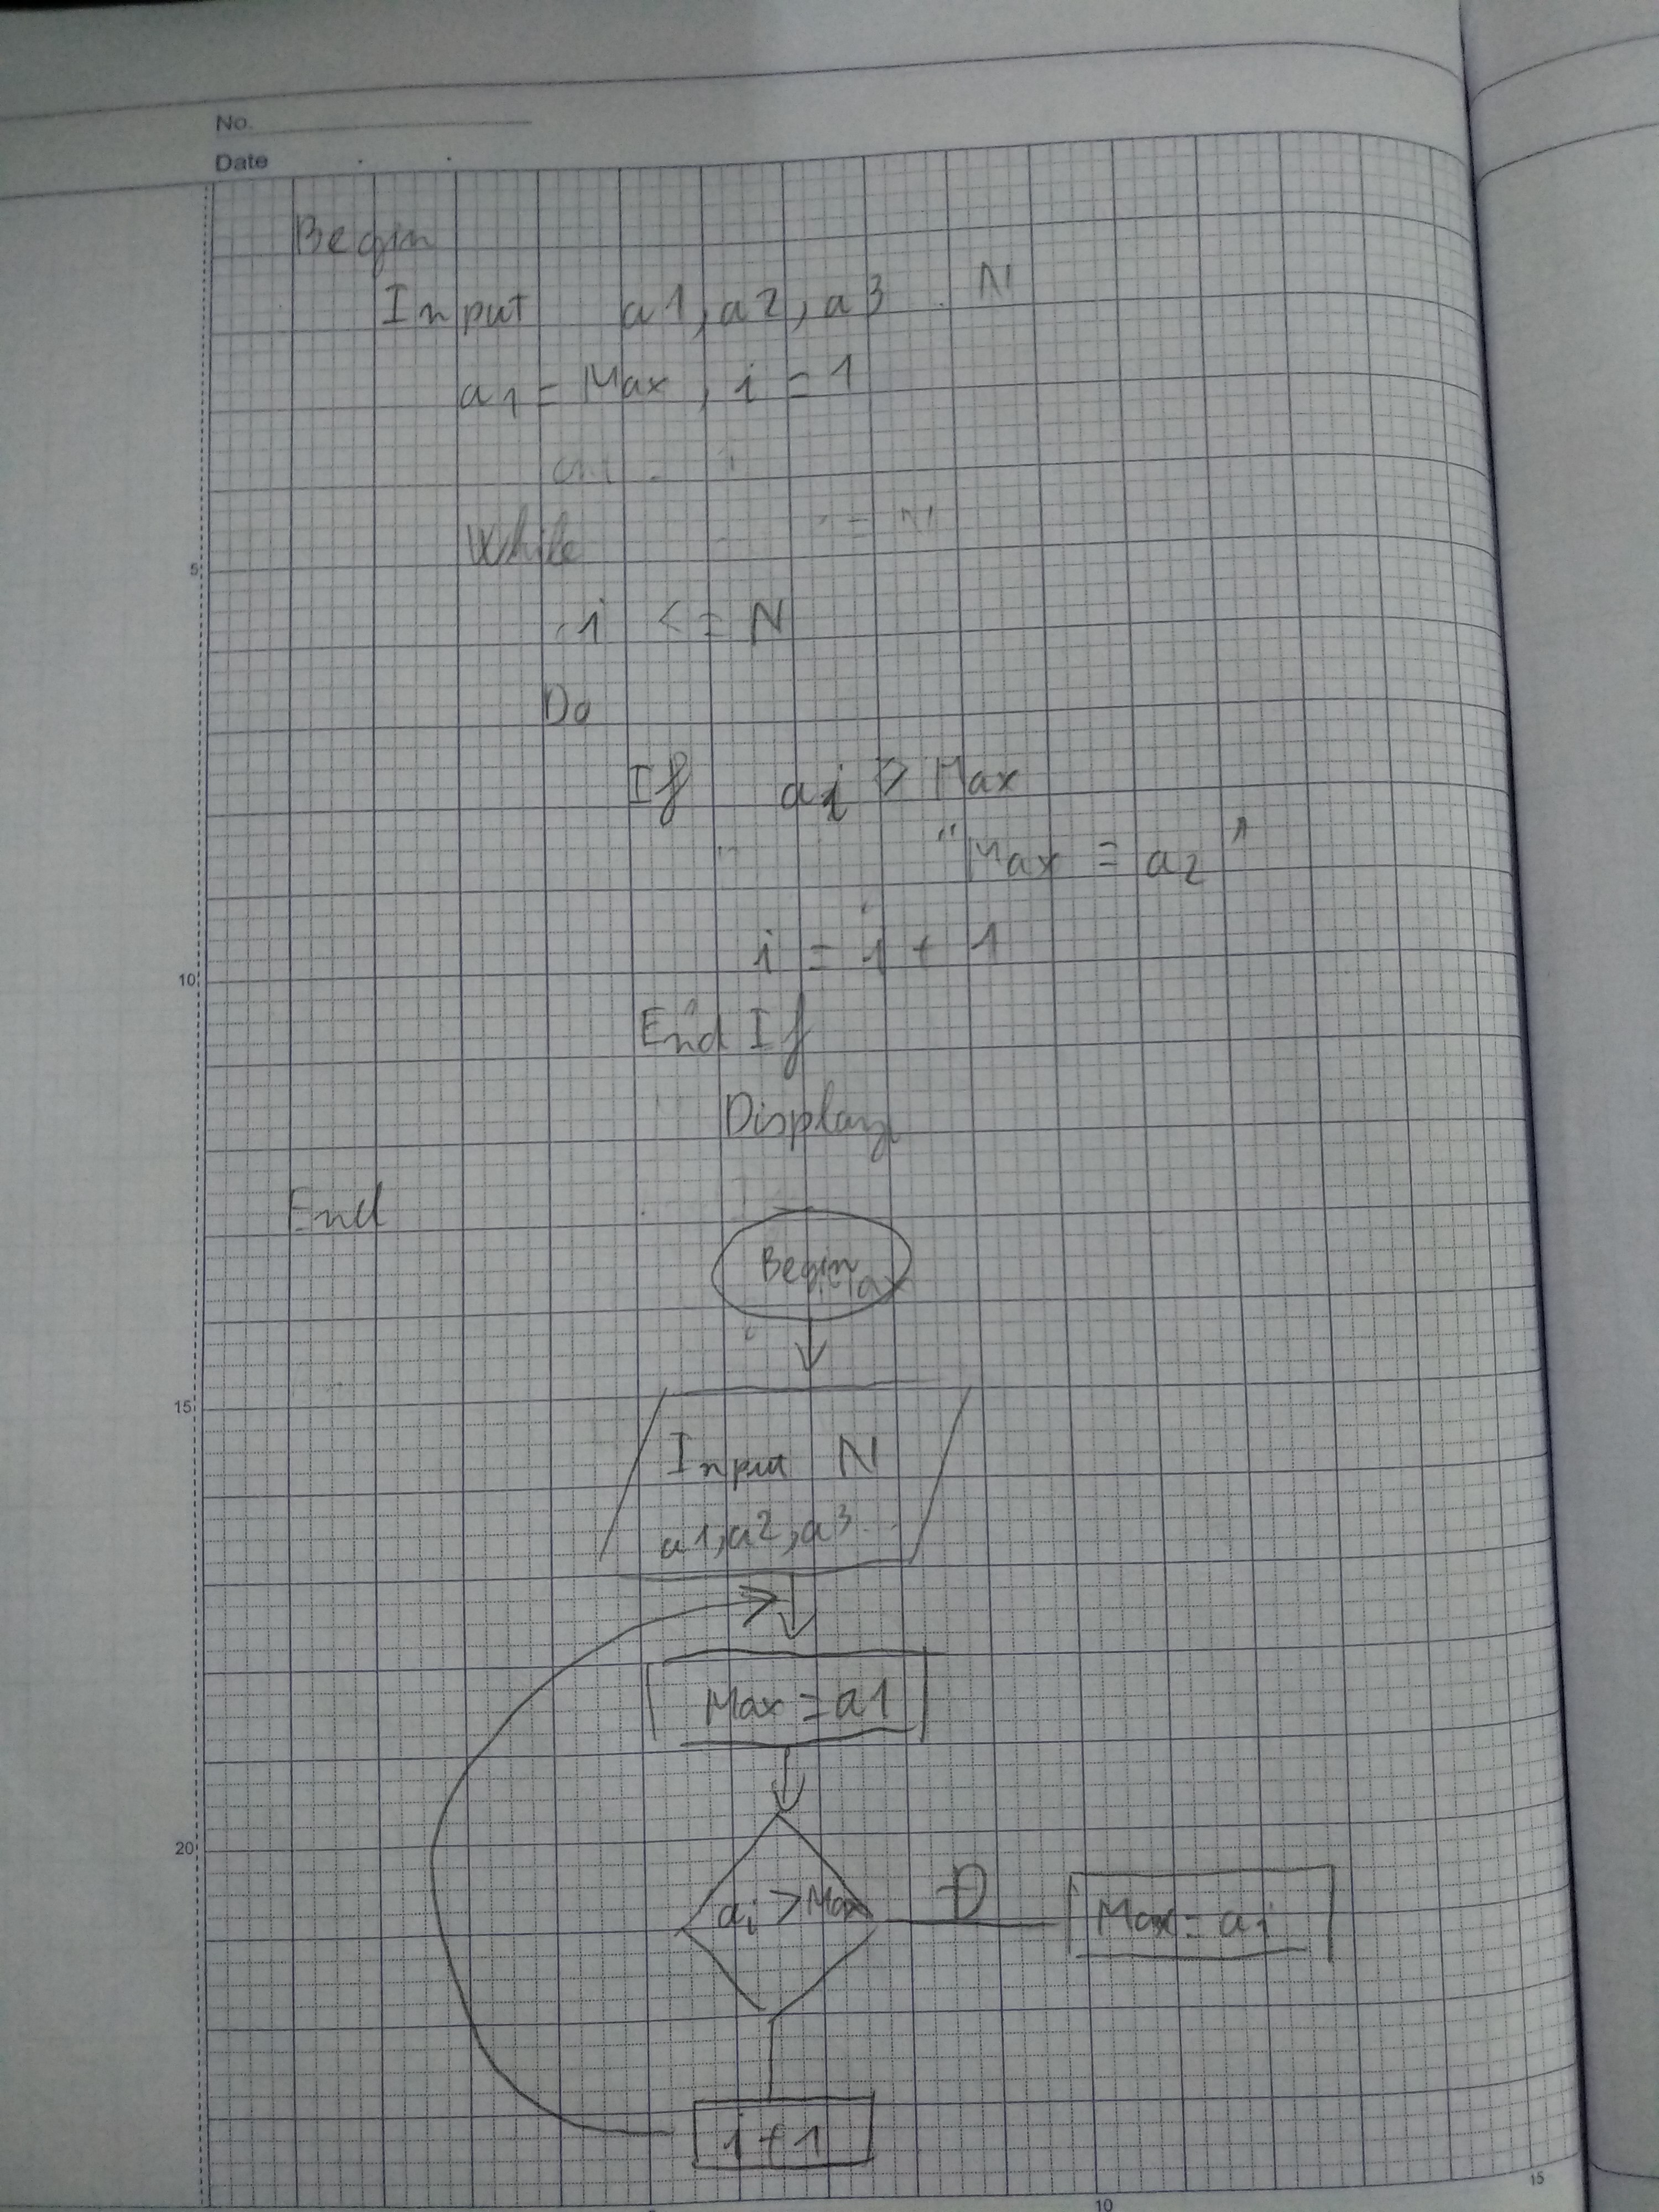 No.
Date
Begin
Input a1, a2, a3 . N
a1 = Max, i = 1
While
i <= N
5
Do
If ai > Max
"Max = a2"
i = i + 1
10
End If
Display
End
Begin
15
Input N
a1, a2, a3...
Max = a1
20
ai > Max Đ Max = ai
i + 1
10 15